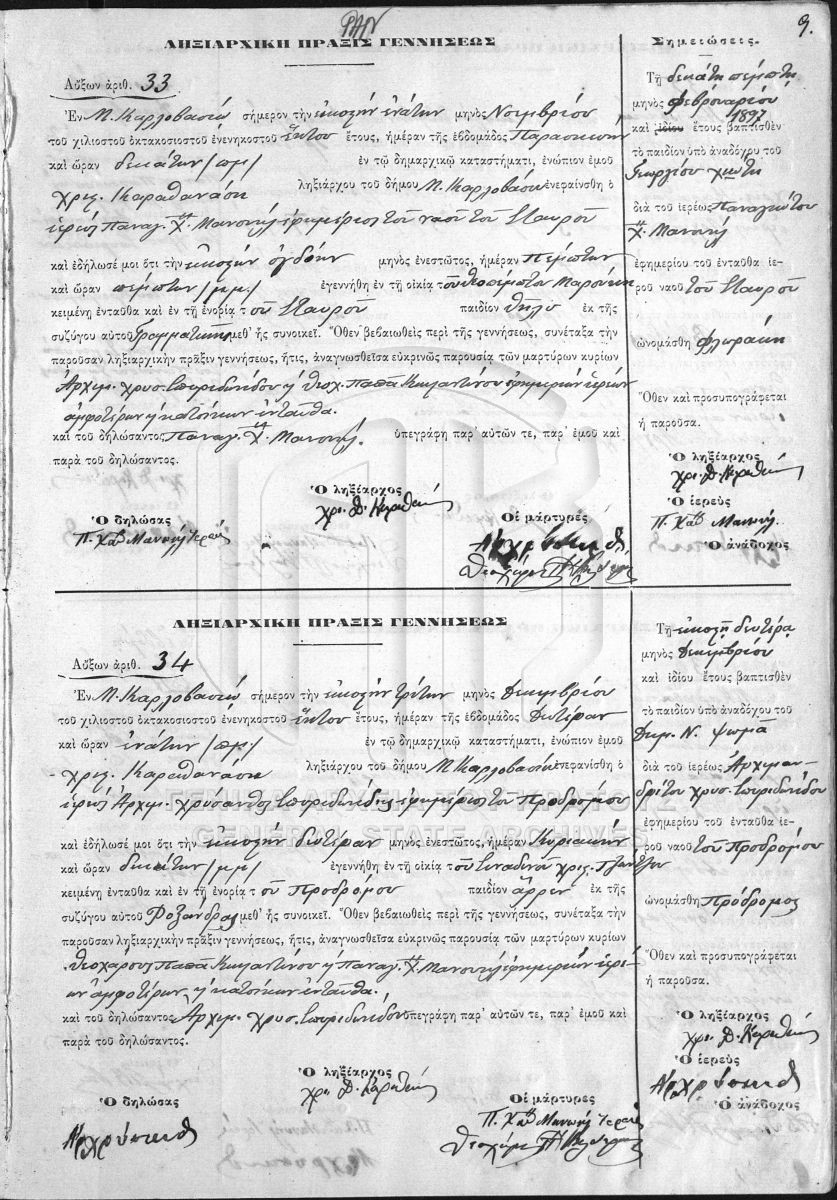 9.
ΛΗΞΙΑΡΧΙΚΗ ΠΡΑΞΙΣ ΓΕΝΝΗΣΕΩΣ
Αὔξων ἀριθ. 33
Ἐν Μ. Καρλοβασίῳ σήμερον τὴν εἰκοστὴν ἐνάτην μηνὸς Νοεμβρίου
τοῦ χιλιοστοῦ ὀκτακοσιοστοῦ ἐνενηκοστοῦ ἕκτου ἔτους, ἡμέραν τῆς ἑβδομάδος Παρασκευὴν
καὶ ὥραν δεκάτην /πμ/ ἐν τῷ δημαρχικῷ καταστήματι, ἐνώπιον ἐμοῦ
Χρισ. Καραθανάση ληξιάρχου τοῦ δήμου Μ. Καρλοβασίου ἐνεφανίσθη ὁ
ἱερεὺς Παναγ. Χ. Μανουὴλ ἐφημέριος τοῦ ναοῦ τοῦ Σταυροῦ
καὶ ἐδήλωσέ μοι ὅτι τὴν εἰκοστὴν ὀγδόην μηνὸς ἐνεστῶτος, ἡμέραν Πέμπτην
καὶ ὥραν πέμπτην /μμ./ ἐγεννήθη ἐν τῇ οἰκίᾳ τοῦ
κειμένῃ ἐνταῦθα καὶ ἐν τῇ ἐνορίᾳ τοῦ Σταυροῦ παιδίον θῆλυ ἐκ τῆς
συζύγου αὐτοῦ Γραμματικῆς μεθ' ἧς συνοικεῖ. Ὅθεν βεβαιωθεὶς περὶ τῆς γεννήσεως, συνέταξα τὴν
παροῦσαν ληξιαρχικὴν πρᾶξιν γεννήσεως, ἥτις, ἀναγνωσθεῖσα εὐκρινῶς παρουσίᾳ τῶν μαρτύρων κυρίων
Ἀρχιμ. Χρυσ. Σπυριδωνίδου ἢ Θεοχ. Παπᾶ Κωνσταντίνου ἐφημερίων ἱερέων
ἀμφοτέρων ἢ κατοίκων ἐνταῦθα.
καὶ τοῦ δηλώσαντος Παναγ. Χ. Μανουὴλ. ὑπεγράφη παρ' αὐτῶν τε, παρ' ἐμοῦ καὶ
παρὰ τοῦ δηλώσαντος.
Ὁ ληξίαρχος
Ὁ δηλώσας
Οἱ μάρτυρες
Σημειώσεις.
Τῇ δεκάτῃ πέμπτῃ
μηνὸς Φεβρουαρίου
1897
καὶ ἰδίου ἔτους βαπτισθὲν
τὸ παιδίον ὑπὸ ἀναδόχου τοῦ
Γεωργίου Χιώτη
διὰ τοῦ ἱερέως Παναγιώτου
Χ. Μανουὴλ
ἐφημερίου τοῦ ἐνταῦθα ἱε-
ροῦ ναοῦ τοῦ Σταυροῦ
ὠνομάσθη Φλωράκη
Ὅθεν καὶ προσυπογράφεται
ἡ παροῦσα.
Ὁ ληξίαρχος
Ὁ ἱερεὺς
Ὁ ἀνάδοχος
ΛΗΞΙΑΡΧΙΚΗ ΠΡΑΞΙΣ ΓΕΝΝΗΣΕΩΣ
Αὔξων ἀριθ. 34
Ἐν Μ. Καρλοβασίῳ σήμερον τὴν εἰκοστὴν τρίτην μηνὸς Δεκεμβρίου
τοῦ χιλιοστοῦ ὀκτακοσιοστοῦ ἐνενηκοστοῦ ἕκτου ἔτους, ἡμέραν τῆς ἑβδομάδος Δευτέραν
καὶ ὥραν ἐνάτην /πμ./ ἐν τῷ δημαρχικῷ καταστήματι, ἐνώπιον ἐμοῦ
Χρισ. Καραθανάση ληξιάρχου τοῦ δήμου Μ. Καρλοβασίου ἐνεφανίσθη ὁ
ἱερεὺς Ἀρχιμ. Χρύσανθος Σπυριδωνίδης ἐφημέριος τοῦ Προδρόμου
καὶ ἐδήλωσέ μοι ὅτι τὴν εἰκοστὴν δευτέραν μηνὸς ἐνεστῶτος, ἡμέραν Κυριακὴν
καὶ ὥραν δεκάτην /μμ/ ἐγεννήθη ἐν τῇ οἰκίᾳ τοῦ
κειμένῃ ἐνταῦθα καὶ ἐν τῇ ἐνορίᾳ τοῦ Προδρόμου παιδίον ἄρρεν ἐκ τῆς
συζύγου αὐτοῦ Ροξάνδρας μεθ' ἧς συνοικεῖ. Ὅθεν βεβαιωθεὶς περὶ τῆς γεννήσεως, συνέταξα τὴν
παροῦσαν ληξιαρχικὴν πρᾶξιν γεννήσεως, ἥτις, ἀναγνωσθεῖσα εὐκρινῶς παρουσίᾳ τῶν μαρτύρων κυρίων
Θεοχάρους Παπᾶ Κωνσταντίνου ἢ Παναγ. Χ. Μανουὴλ ἐφημερίων ἱερέ-
ων ἀμφοτέρων ἢ κατοίκων ἐνταῦθα.
καὶ τοῦ δηλώσαντος Ἀρχιμ. Χρυσ. Σπυριδωνίδου ὑπεγράφη παρ' αὐτῶν τε, παρ' ἐμοῦ καὶ
παρὰ τοῦ δηλώσαντος.
Ὁ ληξίαρχος
Ὁ δηλώσας
Οἱ μάρτυρες
Τῇ εἰκοστῇ δευτέρᾳ
μηνὸς Δεκεμβρίου
καὶ ἰδίου ἔτους βαπτισθὲν
τὸ παιδίον ὑπὸ ἀναδόχου τοῦ
Δημ. Ν. Ψωμᾶ
διὰ τοῦ ἱερέως Ἀρχιμαν-
δρίτου Χρυσ. Σπυριδωνίδου
ἐφημερίου τοῦ ἐνταῦθα ἱε-
ροῦ ναοῦ τοῦ Προδρόμου
ὠνομάσθη Πρόδρομος
Ὅθεν καὶ προσυπογράφεται
ἡ παροῦσα.
Ὁ ληξίαρχος
Ὁ ἱερεὺς
Ὁ ἀνάδοχος
ΓΕΝΙΚΑ ΑΡΧΕΙΑ ΤΟΥ ΚΡΑΤΟΥΣ
GENERAL STATE ARCHIVES